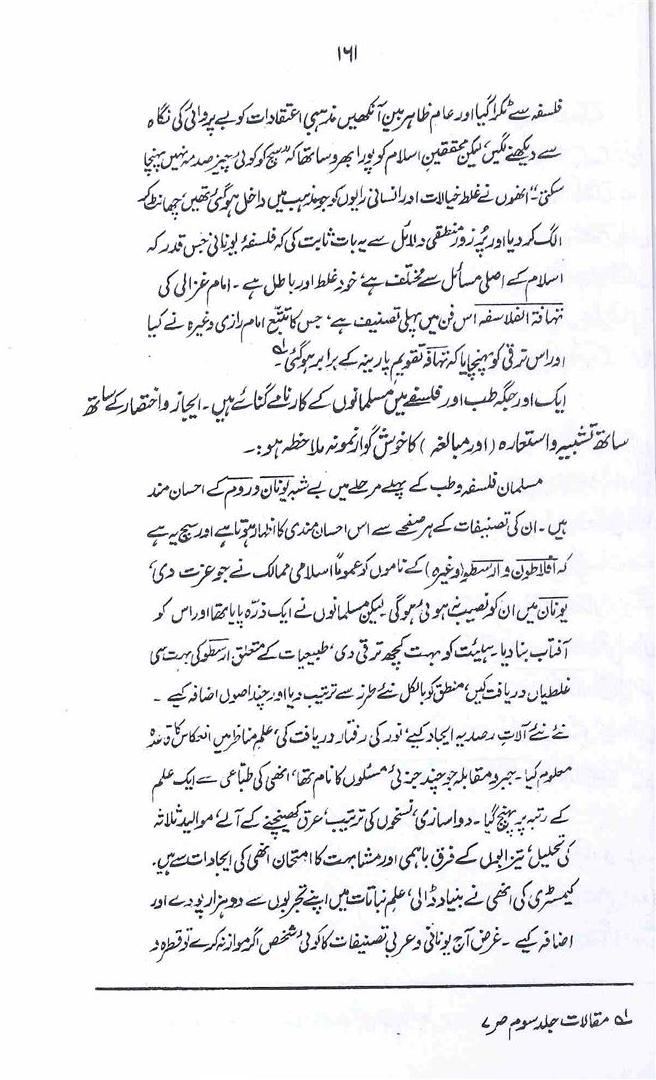 ۱۶۱
فلسفہ سے ٹکرا گیا اور عام ظاہر بین آنکھیں مذہبی اعتقادات کو بے پروائی کی نگاہ
سے دیکھنے لگیں، لیکن محققینِ اسلام کو پورا بھروسا تھا کہ "سچ کو کوئی چیز صدمہ نہیں پہنچا
سکتی"۔ انھوں نے غلط خیالات اور انسانی رایوں کو جو مذہب میں داخل ہوگئی تھیں، چھانٹ کر
الگ کر دیا اور پُر زور منطقی دلائل سے یہ بات ثابت کی کہ فلسفۂ یونانی جس قدر کہ
اسلام کے اصلی مسائل سے مختلف ہے، خود غلط اور باطل ہے۔ امام غزالی کی
تہافۃ الفلاسفہ اس فن میں پہلی تصنیف ہے، جس کا تتبّع امام رازی وغیرہ نے کیا
اور اس ترقی کو پہنچایا کہ تہافہ تقویمِ پارینہ کے برابر ہوگئی؎۱
ایک اور جگہ طب اور فلسفے میں مسلمانوں کے کارنامے گنائے ہیں۔ ایجاز و اختصار کے ساتھ
ساتھ تشبیہ و استعارہ (اور مبالغہ) کا خوش گوار نمونہ ملاحظہ ہو:۔
مسلمان فلسفہ و طب کے پہلے مرحلے میں بے شبہ یونان و روم کے احسان مند
ہیں۔ ان کی تصنیفات کے ہر صفحے سے اس احسان مندی کا اظہار ہوتا ہے اور سچ یہ ہے
کہ افلاطون و ارسطو (وغیرہ) کے ناموں کو عموماً اسلامی ممالک نے جو عزت دی،
یونان میں ان کو نصیب نہ ہوئی ہوگی لیکن مسلمانوں نے ایک ذرّہ پایا تھا اور اس کو
آفتاب بنا دیا۔ ہیئت کو بہت کچھ ترقی دی، طبیعیات کے متعلق ارسطو کی بہت سی
غلطیاں دریافت کیں، منطق کو بالکل نئے طرز سے ترتیب دیا اور چند اصول اضافہ کیے۔
نئے نئے آلاتِ رصدیہ ایجاد کیے، نور کی رفتار دریافت کی، علمِ مناظر میں انعکاس کا قاعدہ
معلوم کیا۔ جبر و مقابلہ جو چند جزئی مسئلوں کا نام تھا، انھی کی طبّاعی سے ایک علم
کے رتبہ پر پہنچ گیا۔ دوا سازی، نسخوں کی ترتیب، عرق کھینچنے کے آلے، موالید ثلاثہ
کی تحلیل، تیزابوں کے فرقِ باہمی اور مشابہت کا امتحان انھی کی ایجادات سے ہیں۔
کیمسٹری کی انھی نے بنیاد ڈالی، علمِ نباتات میں اپنے تجربوں سے دو ہزار پودے اور
اضافہ کیے۔ غرض آج یونانی و عربی تصنیفات کا کوئی شخص اگر موازنہ کرے تو قطرہ و
؎۱ مقالات جلد سوم ص ۷